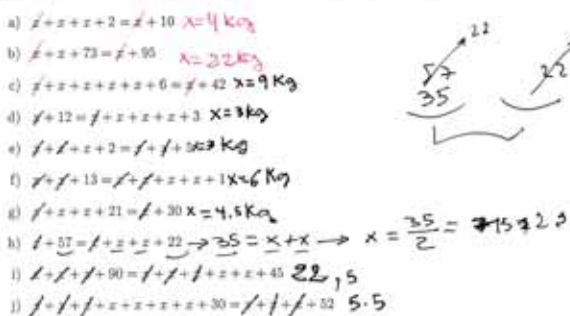 a) x + x + x + 2 = x + 10 x=4 kg
b) x + x + 73 = x + 95 x=22kg
c) x + x + x + x + x + 6 = x + 42 x=9 Kg
d) x + 12 = x + x + x + x + 3 x=3kg
e) x + x + x + 2 = x + x + 5 x=3 Kg
f) x + x + 13 = x + x + x + x + 1 x=6 Kg
g) x + x + x + 21 = x + 30 x=4.5Kg
h) x + 57 = x + x + x + 22 → 35 = x+x → x = 35/2 =
i) x + x + x + 90 = x + x + x + x + x + 45 22,5
j) x + x + x + x + x + x + x + 30 = x + x + x + 52 5.5
22
57
35
22